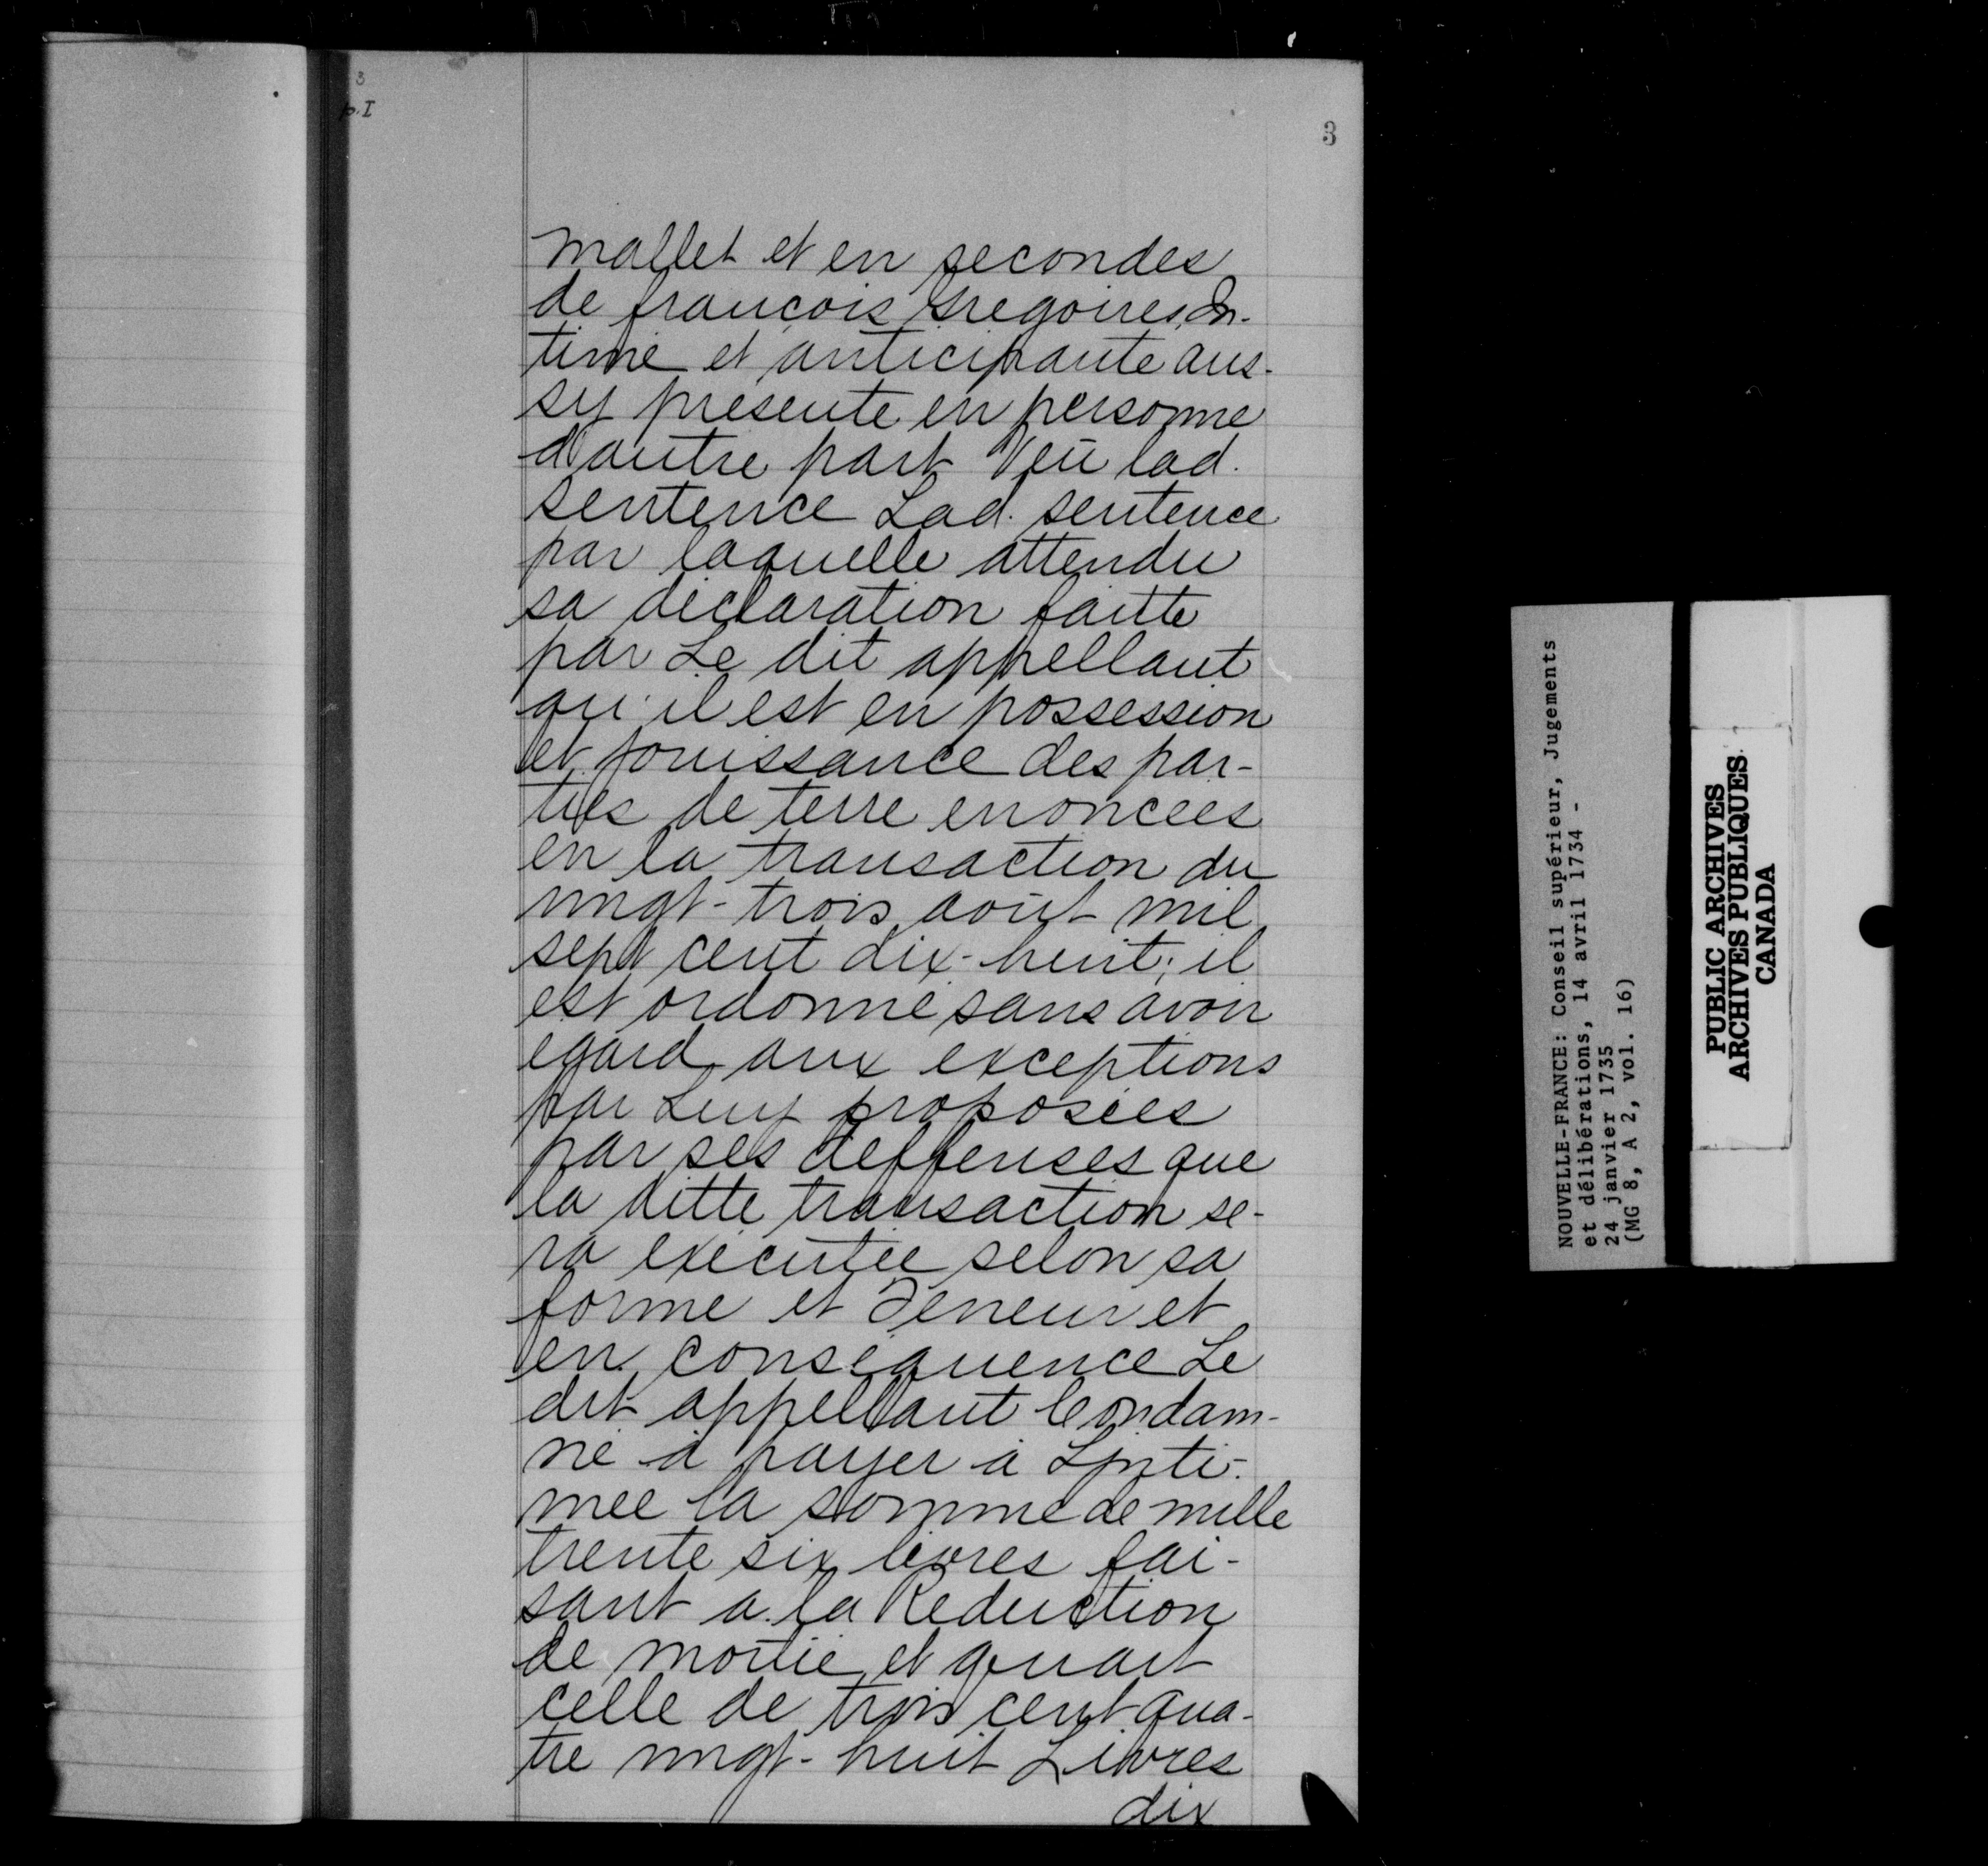 3
p. I
3
mallet et en secondes
de francois Gregoires, In-
timé et anticipante aus-
sy presente en personne
d'autre part Veu lad.
sentence Lad. sentence
par laquelle attendu
sa déclaration faitte
par Le dit appellant
qu'il est en possession
et jouissance des par-
ties de terre enoncées
en la transaction du
vingt-trois août mil
sept cent dix-huit; il
est ordonné sans avoir
egard aux exceptions
par Luy proposées
par ses deffenses que
la ditte transaction se-
ra executée selon sa
forme et Teneur et
en consequence Le
dit appellant Condam-
né à payer à Linti-
mée la somme de mille
trente six livres fai-
sant a la Reduction
de moitié et quart
celle de trois cent qua-
tre vingt-huit Livres
dix
NOUVELLE-FRANCE: Conseil supérieur, Jugements
et délibérations, 14 avril 1734 -
24 janvier 1735
(MG 8, A 2, vol. 16)
PUBLIC ARCHIVES
ARCHIVES PUBLIQUES
CANADA